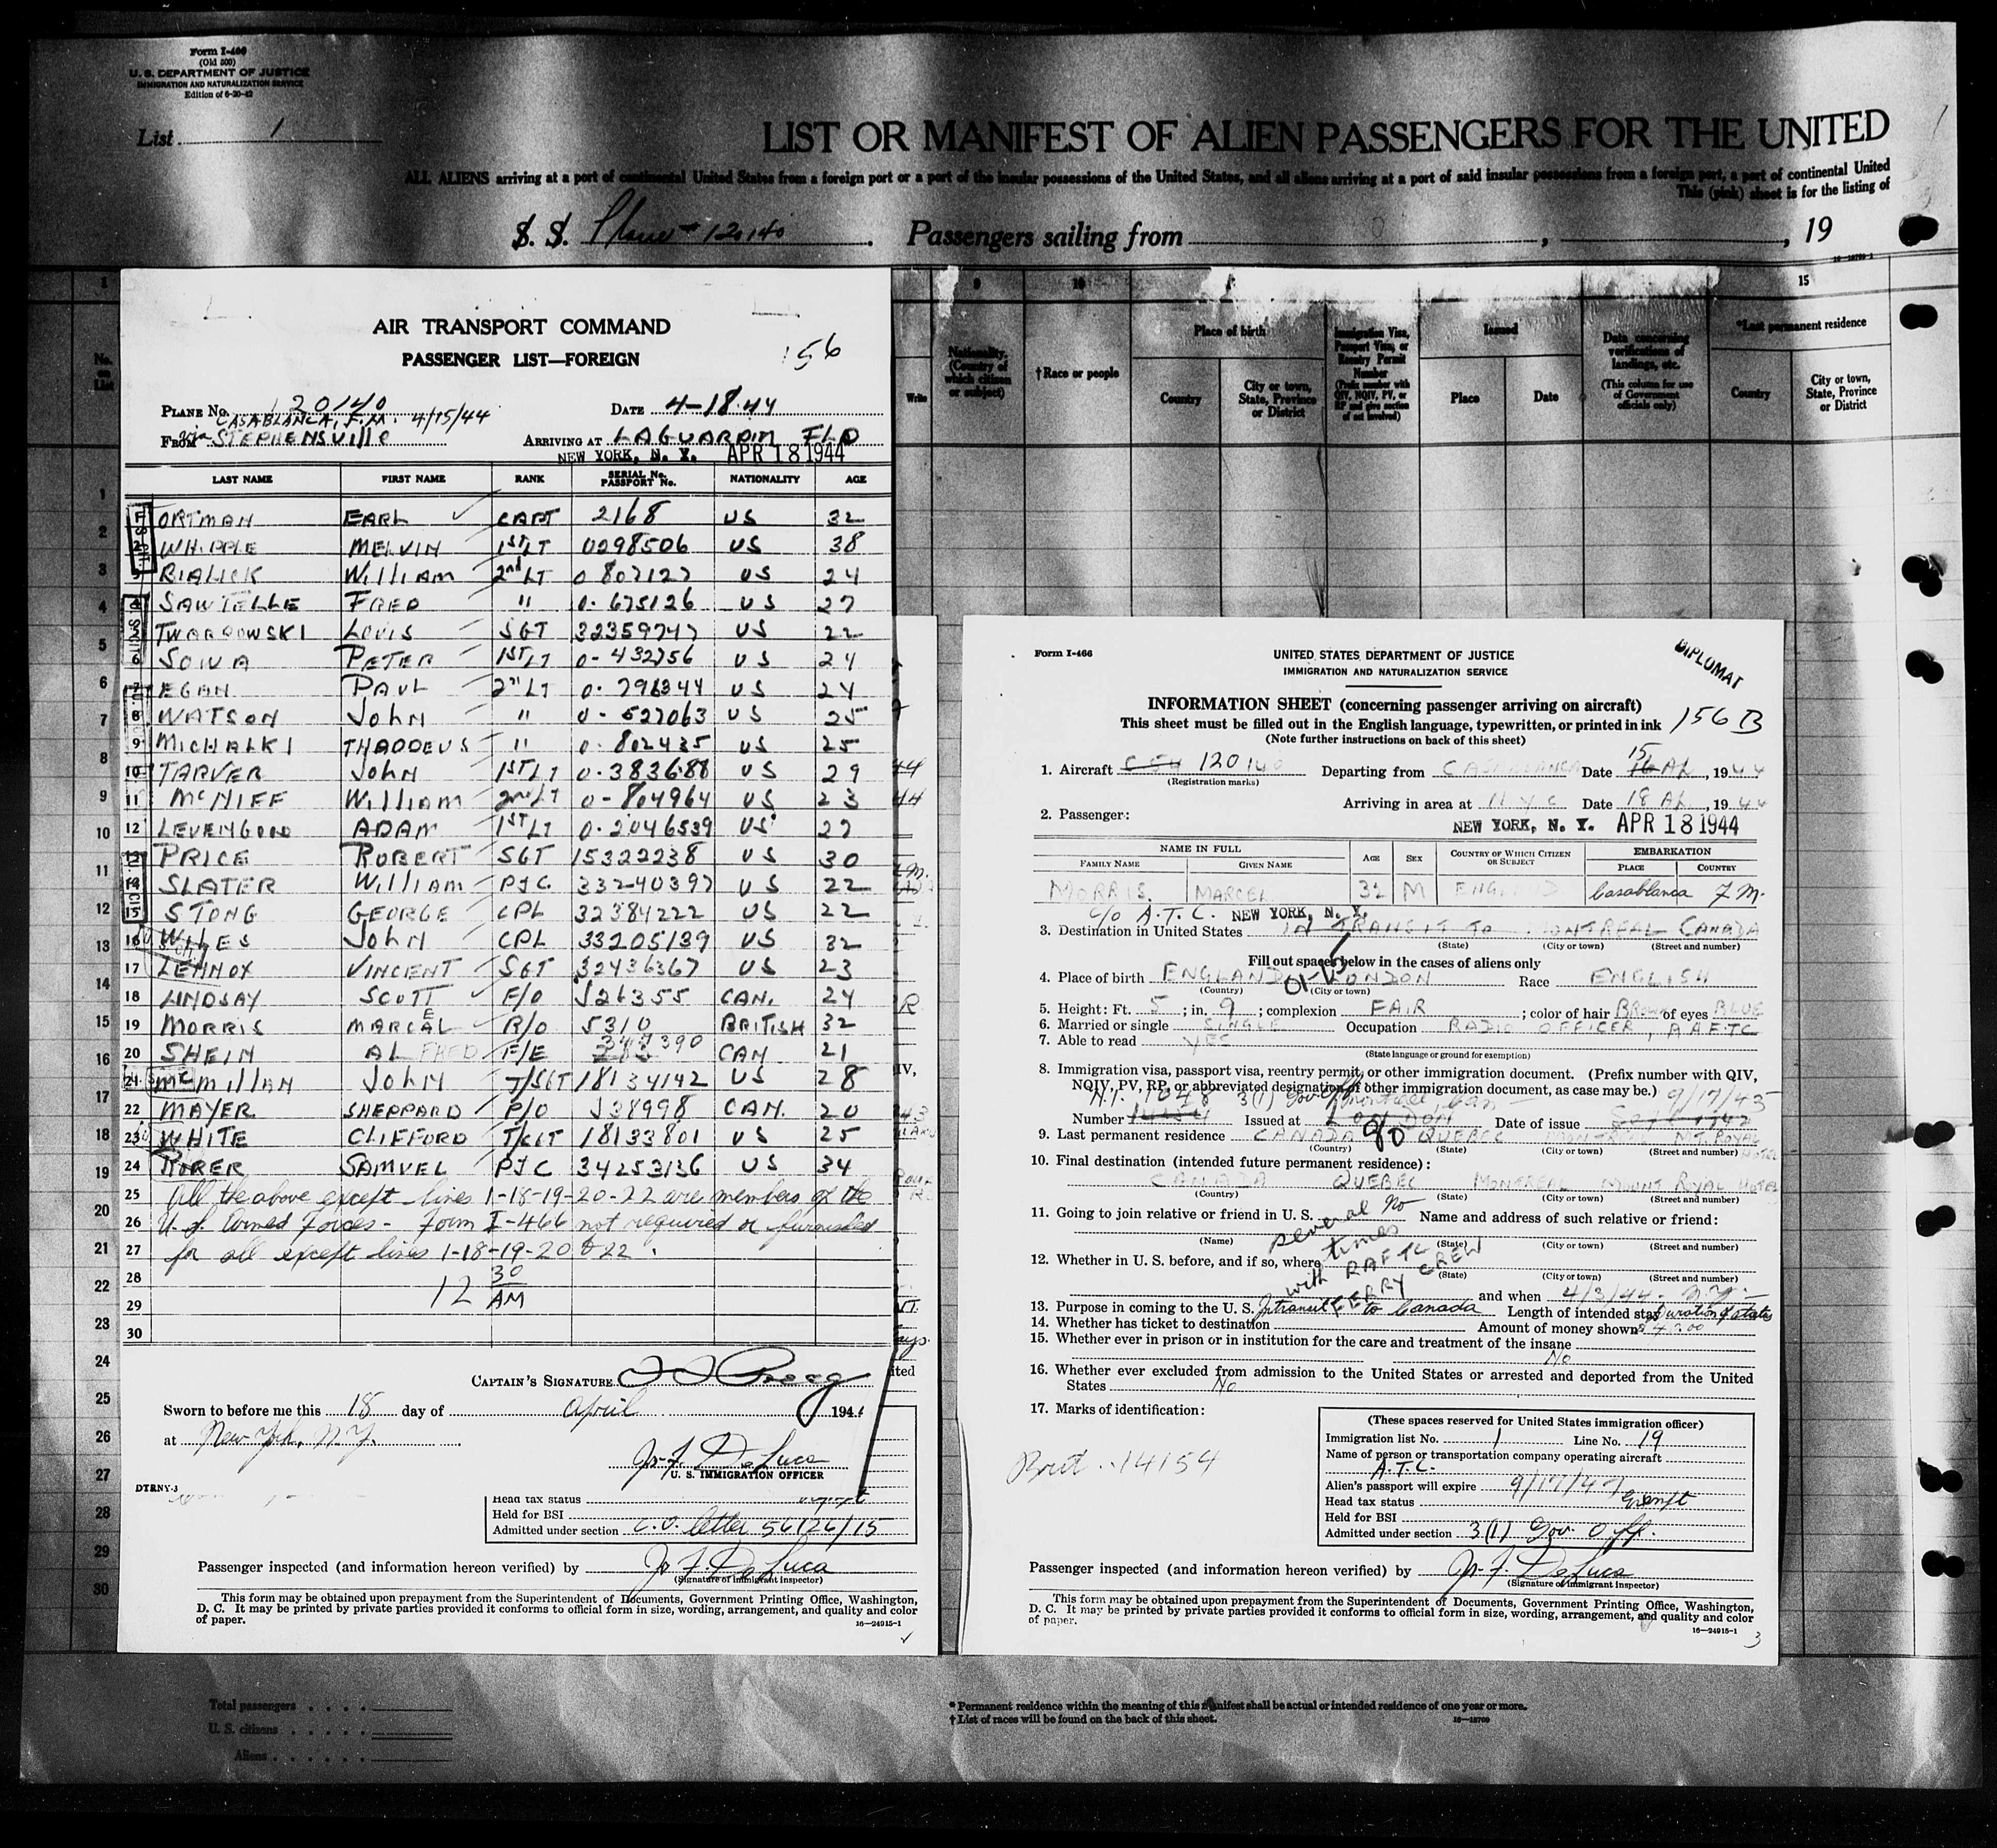 Form I-466
(Old 500)
U. S. DEPARTMENT OF JUSTICE
IMMIGRATION AND NATURALIZATION SERVICE
Edition of 6-20-42
List 1
LIST OR MANIFEST OF ALIEN PASSENGERS FOR THE UNITED
ALL ALIENS arriving at a port of continental United States from a foreign port or a port of the insular possessions of the United States, and all aliens arriving at a port of said insular possessions from a foreign port, a port of continental United
This (pink) sheet is for the listing of
S. S. Plane - 120140 . Passengers sailing from , , 19
AIR TRANSPORT COMMAND
PASSENGER LIST—FOREIGN
156
PLANE No. 120140 DATE 4-18-44
CASABLANCA, F.M. 4/15/44
FROM via STEPHENSVILLE ARRIVING AT LAGUARDIA FLD
NEW YORK, N. Y. APR 18 1944
LAST NAME FIRST NAME RANK SERIAL No. PASSPORT No. NATIONALITY AGE
ORTMAN EARL CAPT 2168 US 32
2 WHIPPLE MELVIN 1ST LT 0298506 US 38
3 BIALICK WILLIAM 2nd LT 0 807127 US 24
4 SAWTELLE FRED " 0-675126 US 27
5 TWAROWSKI LOUIS SGT 32359747 US 22
6 SOWA PETER 1ST LT 0-432756 US 24
7 EGAN PAUL 2nd LT 0-796344 US 24
8 WATSON JOHN " 0-527063 US 25
9 MICHALKI THADDEUS " 0-802435 US 25
10 TARVER JOHN 1ST LT 0-383688 US 29
11 McNIFF WILLIAM 2nd LT 0-804964 US 23
12 LEVENGOOD ADAM 1ST LT 0-2046539 US 27
13 PRICE ROBERT SGT 15322238 US 30
14 SLATER WILLIAM PFC 33240397 US 22
15 STONG GEORGE CPL 32384222 US 22
16 WILES JOHN CPL 33205139 US 32
17 LENNOX VINCENT SGT 32436367 US 23
18 LINDSAY SCOTT F/O J26355 CAN. 24
19 MORRIS MARCEL R/O 5310 BRITISH 32
20 SHEIN ALFRED F/E 347390 CAN 21
21 McMILLAN JOHN T/SGT 18134142 US 28
22 MAYER SHEPPARD P/O J38998 CAN. 20
23 WHITE CLIFFORD T/SGT 18133801 US 25
24 RORER SAMUEL PFC 34253136 US 34
25 All the above except lines 1-18-19-20-22 are members of the
26 U.S. Armed Forces - Form I-466 not required or furnished
27 for all except lines 1-18-19-20 & 22.
28 12 30
29 AM
30
CAPTAIN'S SIGNATURE
Sworn to before me this 18 day of April 1944
at New York, N.Y.
Jo. F. DeLuca
U. S. IMMIGRATION OFFICER
DTRNY-3
Head tax status exempt
Held for BSI
Admitted under section C.O. letter 56126/15
Passenger inspected (and information hereon verified) by Jo. F. DeLuca
(Signature of immigrant inspector)
This form may be obtained upon prepayment from the Superintendent of Documents, Government Printing Office, Washington,
D. C. It may be printed by private parties provided it conforms to official form in size, wording, arrangement, and quality and color
of paper.
16—24915-1
9 10 15
Nationality. (Country of which citizen or subject)
†Race or people
Place of birth
Country
City or town, State, Province or District
Immigration Visa, Passport Visa, or Reentry Permit Number
(Prefix number with QIV, NQIV, PV, or RP and give section of act involved)
Issued
Place Date
Data concerning verifications of landings, etc.
(This column for use of Government officials only)
*Last permanent residence
Country
City or town, State, Province or District
Form I-466
UNITED STATES DEPARTMENT OF JUSTICE
IMMIGRATION AND NATURALIZATION SERVICE
DIPLOMAT
INFORMATION SHEET (concerning passenger arriving on aircraft)
This sheet must be filled out in the English language, typewritten, or printed in ink
156 B
(Note further instructions on back of this sheet)
1. Aircraft C 54 120140 Departing from CASABLANCA Date 15 AP, 1944
(Registration marks)
Arriving in area at N Y C Date 18 AP, 1944
2. Passenger:
NEW YORK, N. Y. APR 18 1944
NAME IN FULL AGE SEX COUNTRY OF WHICH CITIZEN OR SUBJECT EMBARKATION
FAMILY NAME GIVEN NAME PLACE COUNTRY
MORRIS MARCEL 32 M ENGLAND Casablanca F.M.
c/o A.T.C. NEW YORK, N. Y.
3. Destination in United States IN TRANSIT TO MONTREAL CANADA
(State) (City or town) (Street and number)
Fill out spaces below in the cases of aliens only
4. Place of birth ENGLAND LONDON Race ENGLISH
(Country) (City or town)
5. Height: Ft. 5 ; in. 9 ; complexion FAIR ; color of hair BROWN of eyes BLUE
6. Married or single SINGLE Occupation RADIO OFFICER, RAFTC
7. Able to read YES
(State language or ground for exemption)
8. Immigration visa, passport visa, reentry permit, or other immigration document. (Prefix number with QIV,
NQIV, PV, RP, or abbreviated designation of other immigration document, as case may be.)
N.I. 1048 3(1) Gov Off Montreal, Can 9/17/43
Number 14154 Issued at London Date of issue
9. Last permanent residence CANADA QUEBEC MONTREAL MT. ROYAL HOTEL
(Country) (State) (City or town) (Street and number)
10. Final destination (intended future permanent residence):
CANADA QUEBEC MONTREAL MOUNT ROYAL HOTEL
(Country) (State) (City or town) (Street and number)
11. Going to join relative or friend in U. S. No Name and address of such relative or friend:
(Name) (State) (City or town) (Street and number)
12. Whether in U. S. before, and if so, where several times with RAFTC FERRY CREW
(State) (City or town) (Street and number)
and when 4/3/44 - N.Y.
13. Purpose in coming to the U. S. In transit to Canada Length of intended stay Duration of status
14. Whether has ticket to destination Amount of money shown $ 40.00
15. Whether ever in prison or in institution for the care and treatment of the insane
No
16. Whether ever excluded from admission to the United States or arrested and deported from the United
States No
17. Marks of identification:
Brit. 14154
(These spaces reserved for United States immigration officer)
Immigration list No. 1 Line No. 19
Name of person or transportation company operating aircraft
A.T.C.
Alien's passport will expire 9/17/47
Head tax status exempt
Held for BSI
Admitted under section 3(1) Gov. Off.
Passenger inspected (and information hereon verified) by Jo. F. DeLuca
(Signature of immigrant inspector)
This form may be obtained upon prepayment from the Superintendent of Documents, Government Printing Office, Washington,
D. C. It may be printed by private parties provided it conforms to official form in size, wording, arrangement, and quality and color
of paper.
16—24915-1
3
Total passengers
U. S. citizens
Aliens
* Permanent residence within the meaning of this manifest shall be actual or intended residence of one year or more.
† List of races will be found on the back of this sheet.